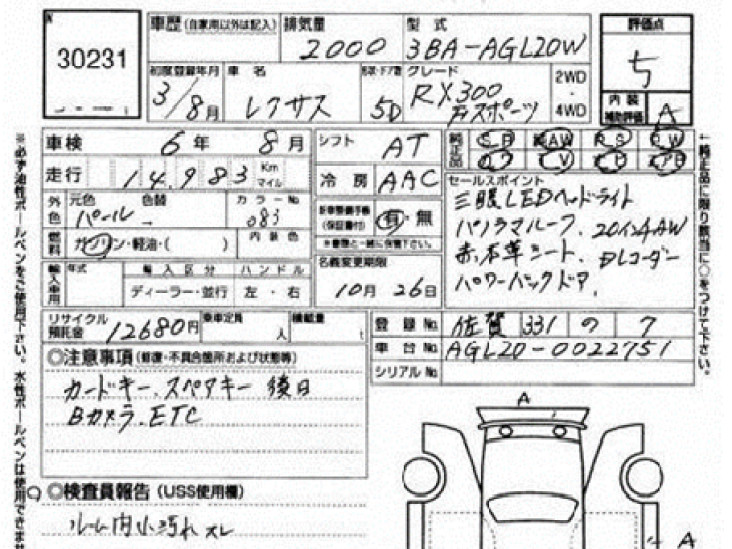 30231
車歴 (自家用以外は記入) 排気量 2000 型式 3BA-AGL20W
評価点 5
初度登録年月 3/8月 車名 レクサス 形状・ドア数 5D グレード RX300 Fスポーツ 2WD・4WD
内装補助評価 A
車検 6年 8月 シフト AT 純正品 SR AW PS PW
走行 14,983 Km マイル 冷房 AAC TV
セールスポイント
三眼LEDヘッドライト
パノラマルーフ、20インチAW
赤本革シート、Dレコーダー
パワーバックドア、
外色 元色 パール 色替 カラーNo 083
新車整備手帳 (保証書付) 有・無
※書類と一緒に保管下さい。
燃料 ガソリン・軽油・( ) 内装色
名義変更期限 10月 26日
輸入車用 年式 輸入区分 ディーラー・並行 ハンドル 左・右
リサイクル預託金 12680円 乗車定員 人 積載量 t
登録No. 佐賀 331 の 7
車台No. AGL20-0022751
シリアルNo.
◎注意事項 (修復・不具合箇所および状態等)
カードキー、スペアキー 後日
Bカメラ、ETC
◎検査員報告 (USS使用欄)
ルーム内小汚れ スレ
A
A
※必ず油性ボールペンをご使用下さい。水性ボールペンは使用できませ
←純正品に限り該当に○をつけて下さい。